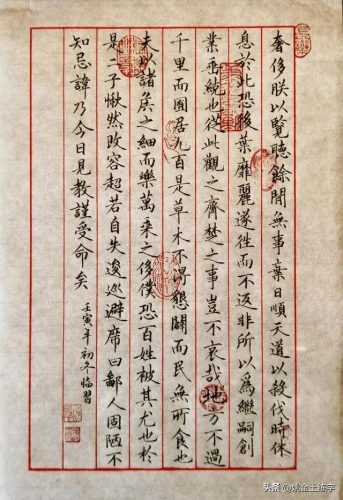 奢侈朕以覽聽餘閒無事棄日順天道以殺伐時休
息於此恐後葉靡麗遂徃而不返非所以爲繼嗣創
業垂統也從此觀之齊楚之事豈不哀哉地方不過
千里而囿居九百是草木不得墾闢而民無所食也
夫以諸矦之細而樂萬乘之侈僕恐百姓被其尤也於
是二子愀然改容超若自失逡巡避席曰鄙人固陋不
知忌諱乃今日見教謹受命矣
壬寅年初冬臨習
头条 @姚金土练字